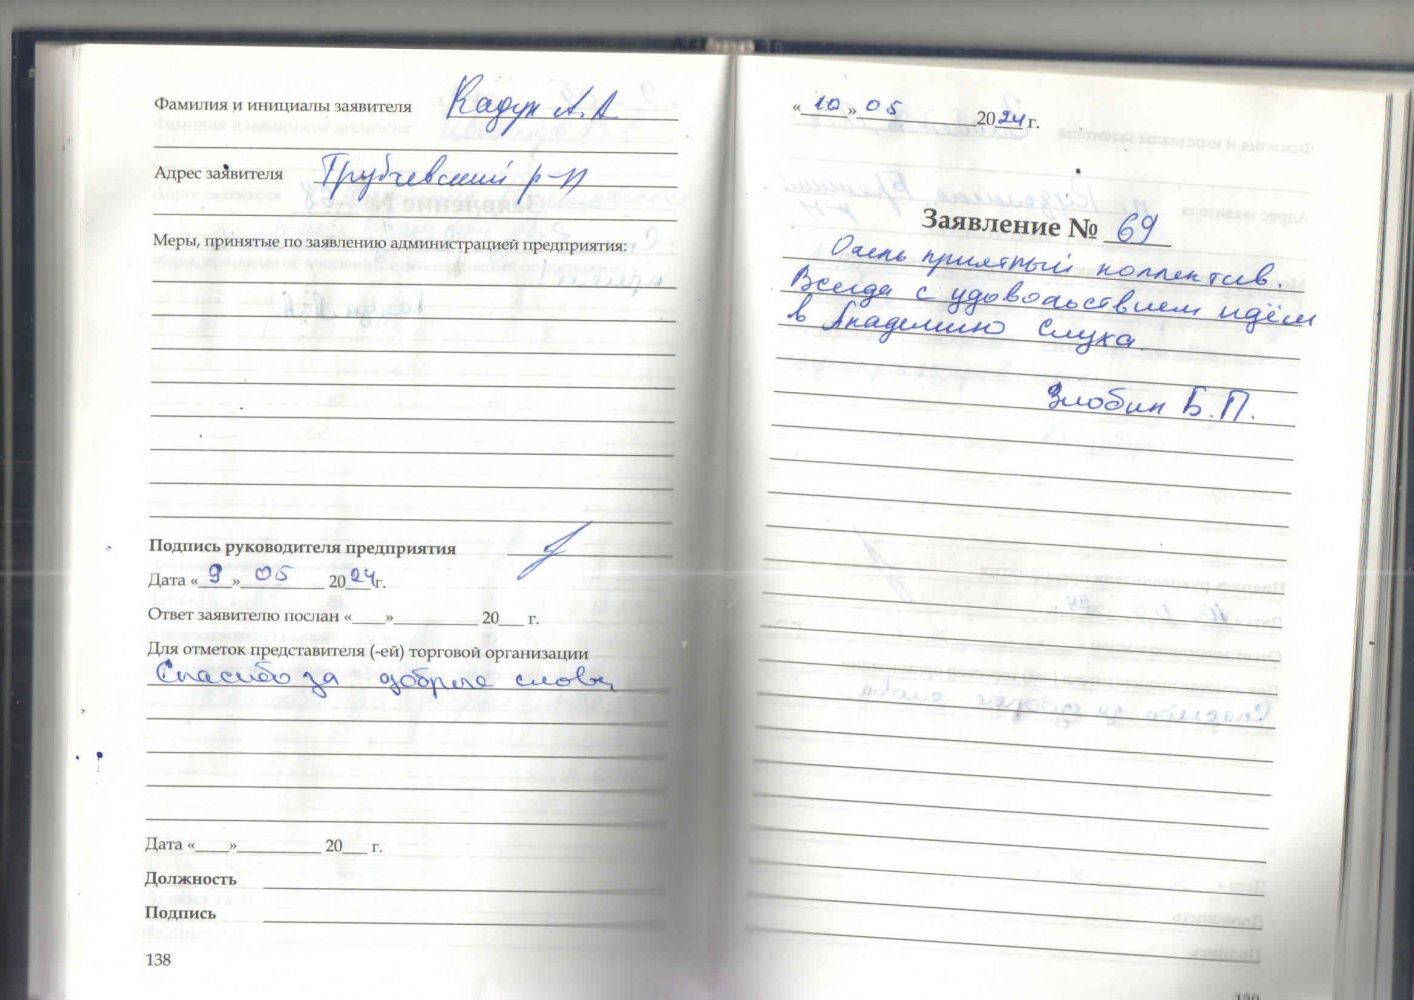 Фамилия и инициалы заявителя Кадун А.А
Адрес заявителя Трубчевский р-н
Меры, принятые по заявлению администрацией предприятия:
Подпись руководителя предприятия
Дата «9» 05 2024г.
Ответ заявителю послан «___»_________ 20___ г.
Для отметок представителя (-ей) торговой организации
Спасибо за добрые слова
Дата «____»__________ 20___ г.
Должность
Подпись
138
«10» 05 2024г.
Заявление № 69
Очень приятный коллектив.
Всегда с удовольствием идём
в Академию Слуха.
Злобин Б.П.